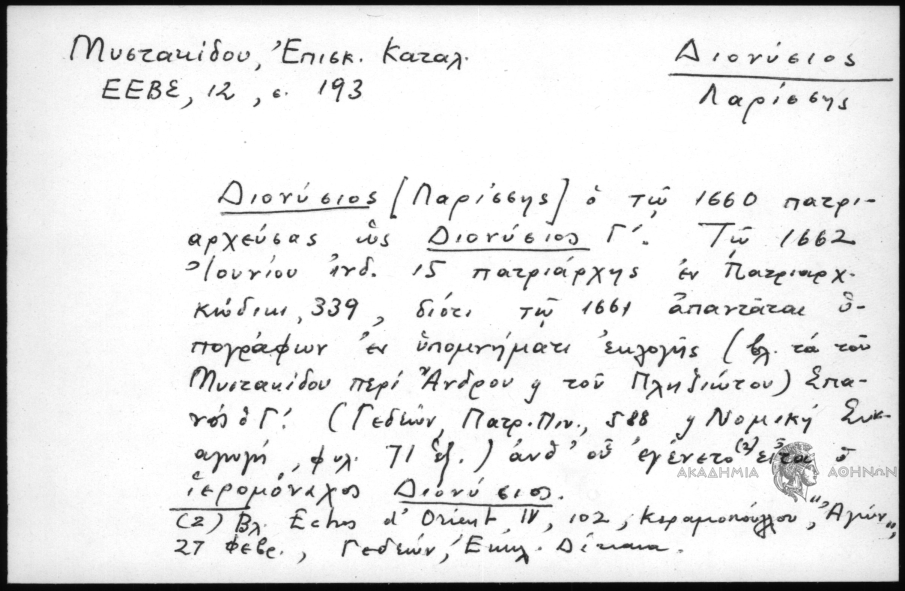 Μυστακίδου, Ἐπισκ. Καταλ.
ΕΕΒΣ, 12, σ. 193
Διονύσιος
Λαρίσσης
Διονύσιος [Λαρίσσης] ὁ τῷ 1660 πατρι-
αρχεύσας ὡς Διονύσιος Γ'. Τῷ 1662
Ἰουνίου ἰνδ. 15 πατριάρχης ἐν Πατριαρχ.
κώδικι, 339, διότι τῷ 1661 ἀπαντᾶται ὑ-
πογράφων ἐν ὑπομνήματι ἐκλογῆς (βλ. τὰ τοῦ
Μυστακίδου περὶ Ἄνδρου ἢ τοῦ Πληδιώτου) Σπα-
νὸς ὁ Γ'. (Γεδεών, Πατρ. Πιν., 588 ἢ Νομικὴ Συν-
αγωγή, φυλ. 71 ἑξ.) ἀνθ' οὗ ἐγένετο (2) εἶτα ὁ
ἱερομόναχος Διονύσιος.
(2) Βλ. Echos d'Orient IV, 102, Κεραμοπούλλου, "Ἀγών",
27 Φεβρ., Γεδεών, Ἐκκλ. Δίκαια.
ΑΚΑΔΗΜΙΑ ΑΘΗΝΩΝ